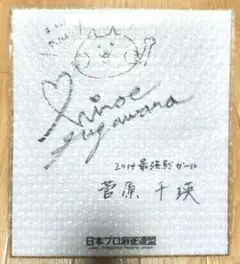 Chinoe
Sugawara
2014最強戦ガール
菅原 千瑛
日本プロ麻雀連盟